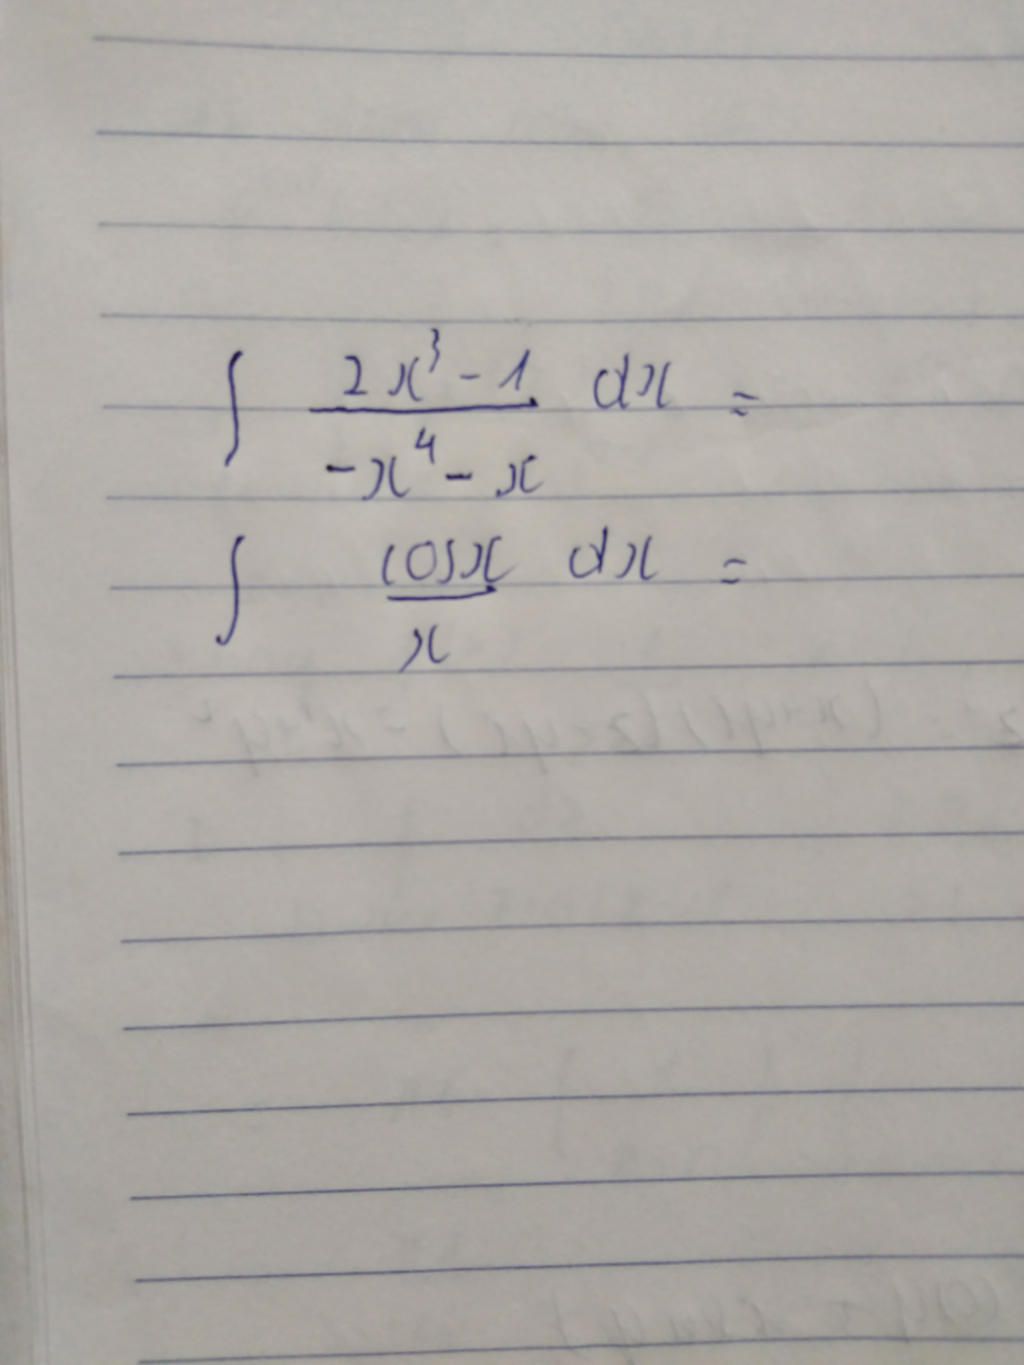 ∫ (2x³ - 1)/(-x⁴ - x) dx =
∫ cosx/x dx =